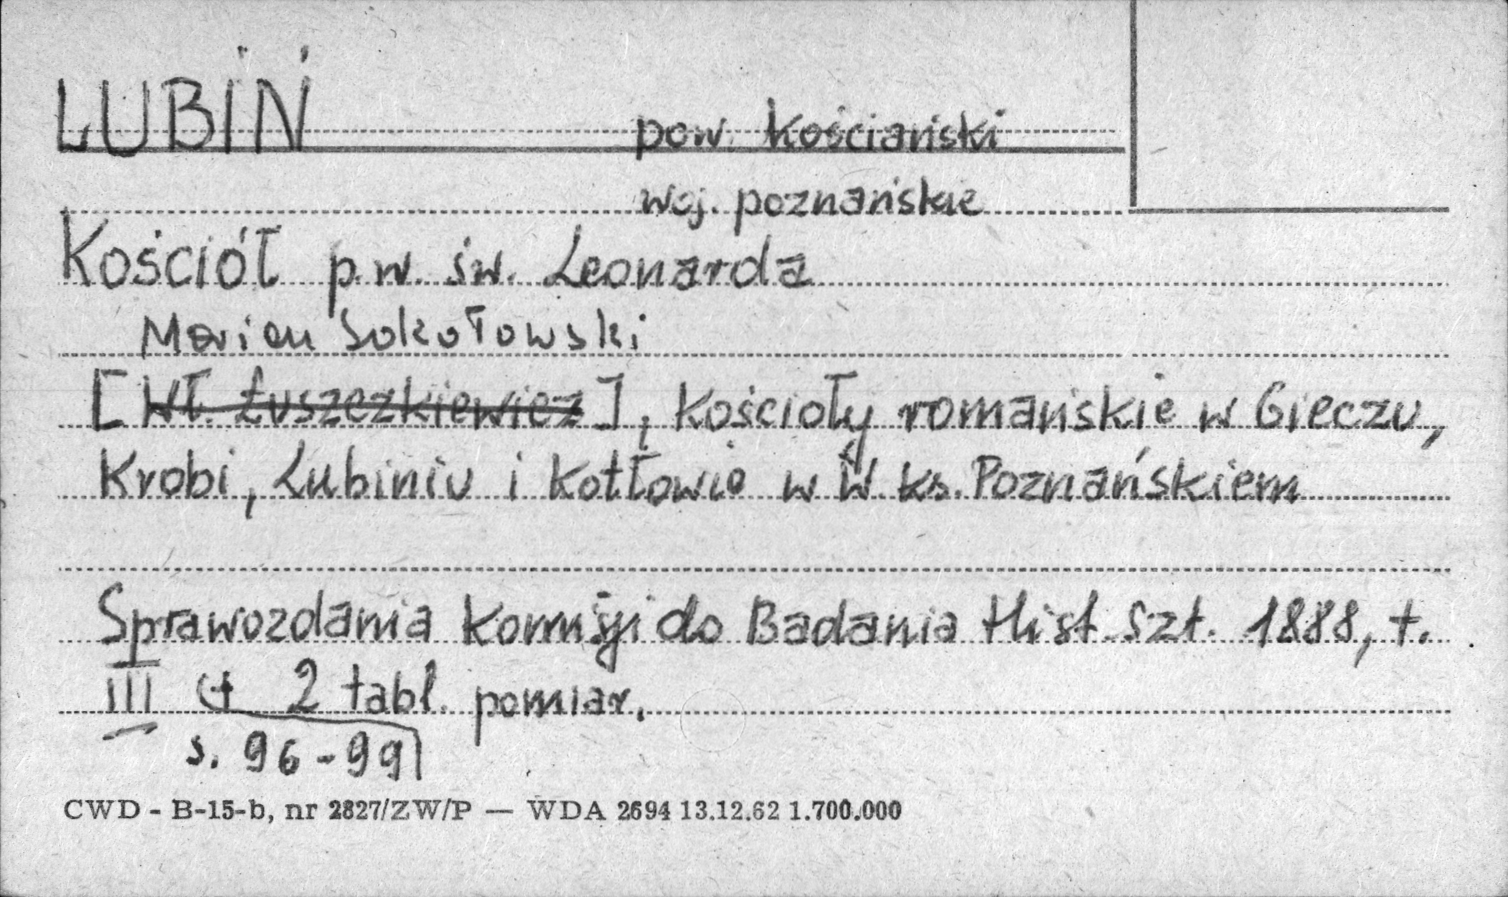 LUBIŃ pow. Kościański
woj. poznańskie
Kościół p.w. św. Leonarda
Marian Sokołowski
[Wł. Łuszczkiewicz], Kościoły romańskie w Gieczu,
Krobi, Lubiniu i Kotłowie w W. ks. Poznańskiem
Sprawozdania Komisji do Badania Hist. Szt. 1888, t.
III (+ 2 tabl. pomiar.
s. 96-99
CWD - B-15-b, nr 2827/ZW/P — WDA 2694 13.12.62 1.700.000